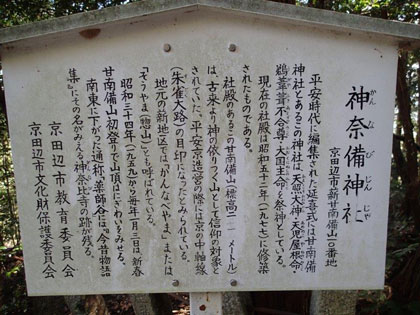 神奈備神社
かんなびじんじゃ
京田辺市薪甘南備山一〇番地
平安時代に編集された延喜式には甘南備
神社とあるこの神社は、天照大神・天児屋根命・
鵜葺葺不合尊・大国主命を祭神としている。
現在の社殿は昭和五十二年(一九七七)に修築
されたものである。
社殿のあるこの甘南備山(標高二一一メートル)
は、古来より神の依りつく山として信仰の対象と
されていた。平安京造営の際には京の中軸線
(朱雀大路)の目印になったとみられている。
地元の新地区では「かんなべやま」または
「ぞうやま(惣山)」とも呼ばれている。
昭和三十四年(一九五九)から毎年一月三日は新春
甘南備山初登りで山頂はにぎわいをみせる。
南東に下がった通称「薬師谷」は、「今昔物語
集」にその名がみえる神奈比寺の跡が残る。
京田辺市教育委員会
京田辺市文化財保護委員会